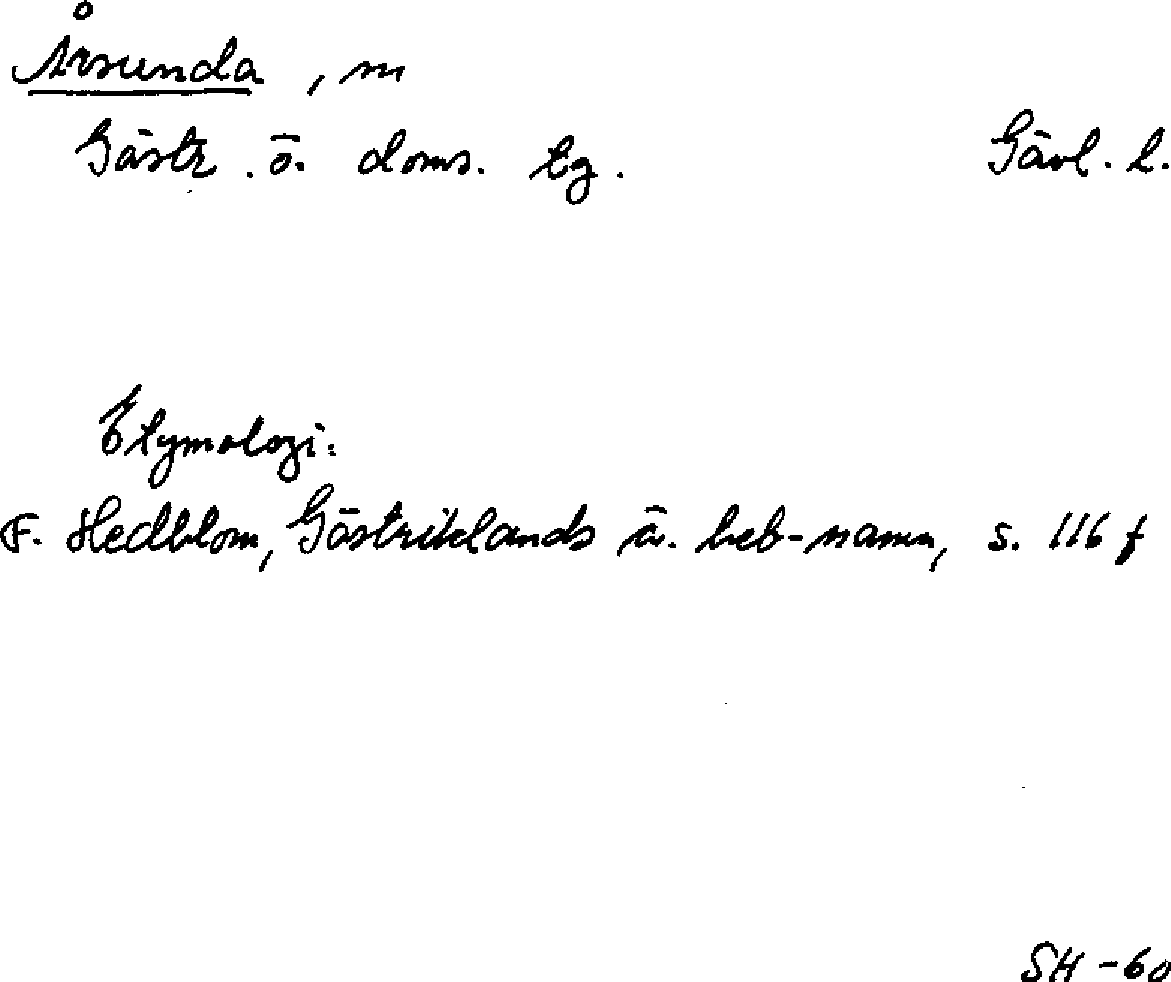 Årsunda , sn
Gästr. ö. doms. tg. Gävl. l.
Etymologi:
F. Hedblom, Gästriklands ä. beb-namn, s. 116 f
SH -60